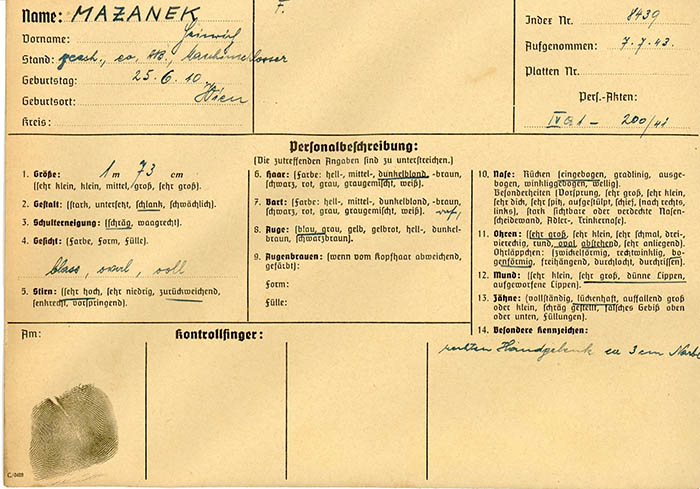 Name: MAZANEK
Vorname: Heinrich
Stand: gesch., ev. AB, Maschinenschlosser
Geburtstag: 25.6.10
Geburtsort: Wien
Kreis:
F.
Index Nr. 8439
Aufgenommen: 7.7.43.
Platten Nr.
Pers.-Akten:
IV A 1 - 200/41
Personalbeschreibung:
(Die zutreffenden Angaben sind zu unterstreichen.)
1. Größe: 1 m 73 cm
(sehr klein, klein, mittel, groß, sehr groß).
2. Gestalt: (stark, untersetzt, schlank, schwächlich).
3. Schulterneigung: (schräg, waagrecht).
4. Gesicht: (Farbe, Form, Fülle).
blass, oval, voll
5. Stirn: (sehr hoch, sehr niedrig, zurückweichend,
senkrecht, vorspringend).
6. Haar: (Farbe: hell-, mittel-, dunkelblond, -braun,
schwarz, rot, grau, graugemischt, weiß).
7. Bart: (Farbe: hell-, mittel-, dunkelblond, -braun,
schwarz, rot, grau, graugemischt, weiß).
8. Auge: (blau, grau, gelb, gelbrot, hell-, dunkel-
braun, schwarzbraun).
9. Augenbrauen: (wenn vom Kopfhaar abweichend,
gefärbt):
Form:
Fülle:
10. Nase: Rücken (eingebogen, gradlinig, ausge-
bogen, winkliggebogen, wellig).
Besonderheiten (Vorsprung, sehr groß, sehr klein,
sehr dick, sehr spitz, aufgestülpt, schief, (nach rechts,
links), stark sichtbare oder verdeckte Nasen-
scheidewand, Adler-, Trinkernase).
11. Ohren: (sehr groß, sehr klein, sehr schmal, drei-,
viereckig, rund, oval abstehend, sehr anliegend).
Ohrläppchen: (zwickelförmig, rechtwinklig, bo-
genförmig, freihängend, durchlocht, durchrissen).
12. Mund: (sehr klein, sehr groß, dünne Lippen,
aufgeworfene Lippen).
13. Zähne: (vollständig, lückenhaft, auffallend groß
oder klein, schräg gestellt, falsches Gebiß oben
oder unten, Füllungen).
14. Besondere Kennzeichen:
rechten Handgelenk ca 3 cm
Am:
Kontrollfinger: